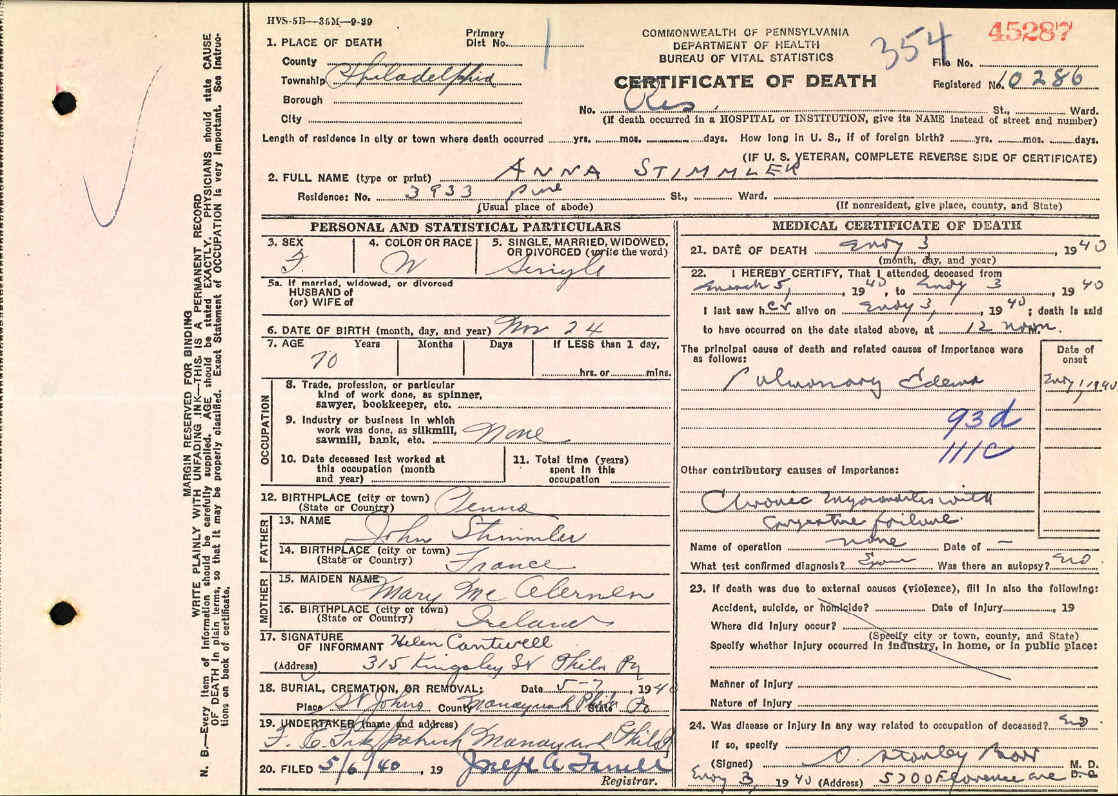 HVS-5B—35M—9-39
Primary Dist No. 1
COMMONWEALTH OF PENNSYLVANIA
DEPARTMENT OF HEALTH
BUREAU OF VITAL STATISTICS
CERTIFICATE OF DEATH
354
45287
File No.
Registered No. 10286
1. PLACE OF DEATH
County
Township Philadelphia
Borough
City
No. Res. St., Ward.
(If death occurred in a HOSPITAL or INSTITUTION, give its NAME instead of street and number)
Length of residence in city or town where death occurred yrs. mos. days. How long in U. S., if of foreign birth? yrs. mos. days.
(IF U. S. VETERAN, COMPLETE REVERSE SIDE OF CERTIFICATE)
2. FULL NAME (type or print) ANNA STIMMLER
Residence: No. 3933 Pine St., Ward.
(Usual place of abode) (If nonresident, give place, county, and State)
PERSONAL AND STATISTICAL PARTICULARS
3. SEX F. 4. COLOR OR RACE W 5. SINGLE, MARRIED, WIDOWED, OR DIVORCED (write the word) Single
5a. If married, widowed, or divorced
HUSBAND of
(or) WIFE of
6. DATE OF BIRTH (month, day, and year) Nov 24
7. AGE 70 Years Months Days If LESS than 1 day, hrs. or mins.
OCCUPATION
8. Trade, profession, or particular
kind of work done, as spinner,
sawyer, bookkeeper, etc.
9. Industry or business in which
work was done, as silkmill,
sawmill, bank, etc. None
10. Date deceased last worked at
this occupation (month
and year)
11. Total time (years)
spent in this
occupation
12. BIRTHPLACE (city or town)
(State or Country) Penna
FATHER
13. NAME John Stimmler
14. BIRTHPLACE (city or town)
(State or Country) France
MOTHER
15. MAIDEN NAME Mary Mc
16. BIRTHPLACE (city or town)
(State or Country) Ireland
17. SIGNATURE
OF INFORMANT Helen Cantwell
(Address) 315 Kingsley St Phila Pa
18. BURIAL, CREMATION, OR REMOVAL: Date 5-7, 1940
Place St Johns County Manayunk Phila State Pa
19. UNDERTAKER (name and address)
F. C. Fitzpatrick Manayunk Phila
20. FILED 5/6/40, 19 Joseph A Farrell
Registrar.
MEDICAL CERTIFICATE OF DEATH
21. DATE OF DEATH May 3, 1940
(month, day, and year)
22. I HEREBY CERTIFY, That I attended deceased from
March 5, 1940, to May 3 1940
I last saw her alive on May 3, 1940; death is said
to have occurred on the date stated above, at 12 noon.
The principal cause of death and related causes of importance were
as follows:
Date of
onset
Pulmonary Edema May 1, 1940
93d
111c
Other contributory causes of importance:
Chronic myocarditis with
congestive failure.
Name of operation none Date of —
What test confirmed diagnosis? Was there an autopsy? No
23. If death was due to external causes (violence), fill in also the following:
Accident, suicide, or homicide? Date of Injury , 19
Where did injury occur?
(Specify city or town, county, and State)
Specify whether injury occurred in industry, in home, or in public place:
Manner of Injury
Nature of Injury
24. Was disease or injury in any way related to occupation of deceased? No
If so, specify
(Signed) O. Stanley M. D.
May 3, 1940 (Address) 5200 Florence ave
MARGIN RESERVED FOR BINDING
WRITE PLAINLY WITH UNFADING INK—THIS IS A PERMANENT RECORD
N. B.—Every item of information should be carefully supplied. AGE should be stated EXACTLY. PHYSICIANS should state CAUSE
OF DEATH in plain terms, so that it may be properly classified. Exact Statement of OCCUPATION is very important. See Instruc-
tions on back of certificate.